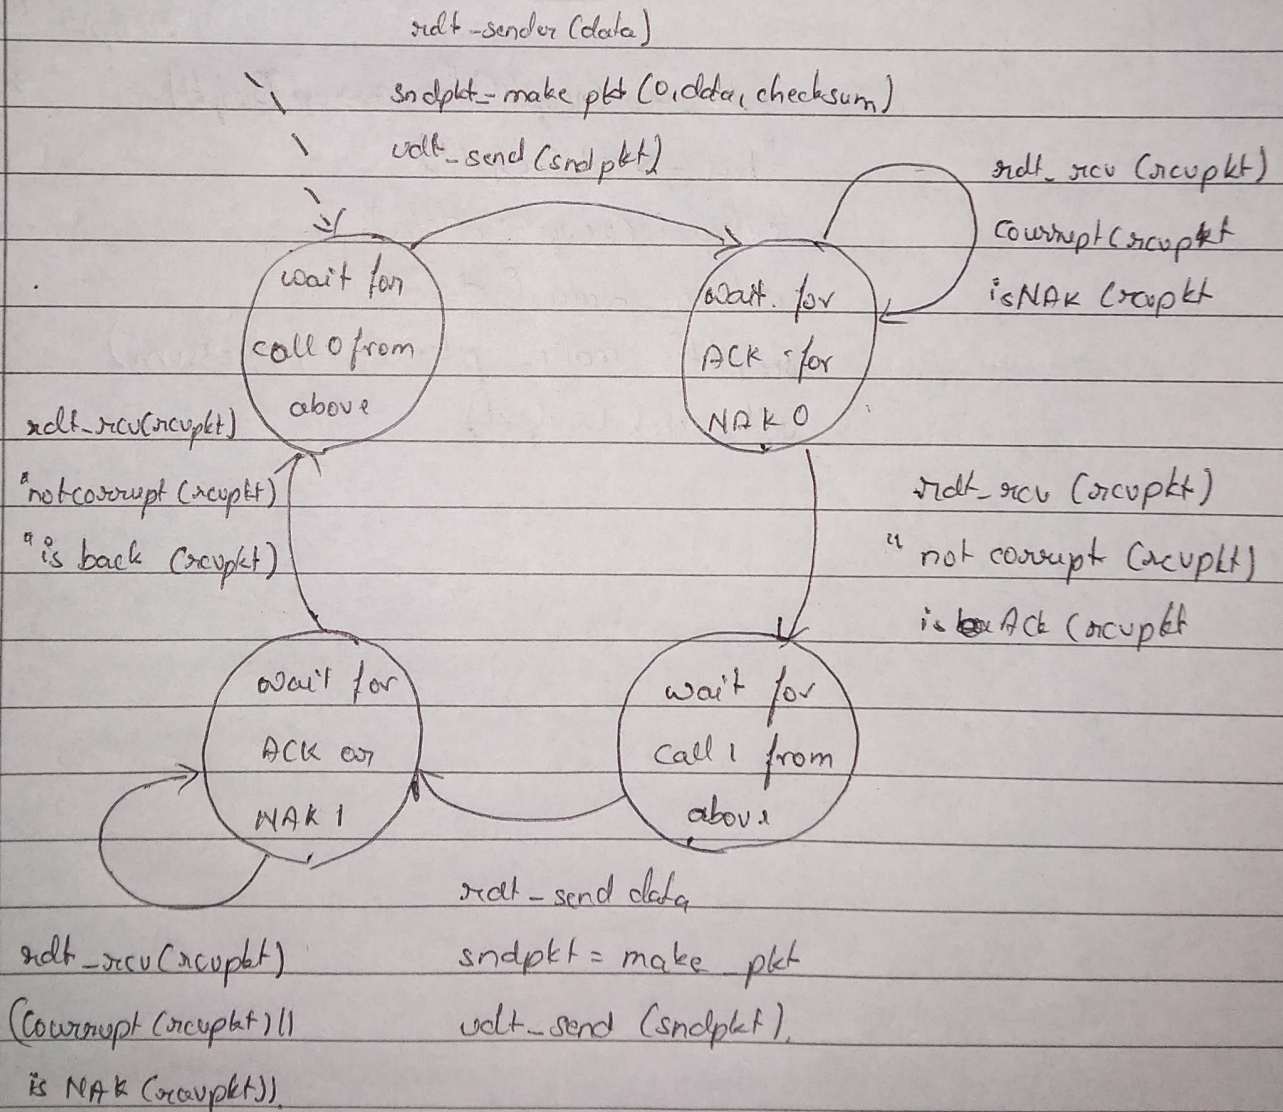 rdt_sender (data)
sndpkt_make pkt (0, data, checksum)
udt_send (sndpkt)
rdt_rcv (rcvpkt)
Courrupt (rcvpkt
isNAK (rcvpkt
wait for
call 0 from
above
wait. for
ACK for
NAK 0
rdt_rcv(rcvpkt)
"notcorrupt (rcvpkt)
"is back (rcvpkt)
rdt_rcv (rcvpkt)
" not corrupt (rcvpkt)
is Ack (rcvpkt
wait for
ACK or
NAK 1
wait for
call 1 from
above
rdt_send data
sndpkt = make_pkt
udt_send (sndpkt),
rdt_rcv (rcvpkt)
(Courrupt (rcvpkt) ||
is NAK (rcvpkt)).